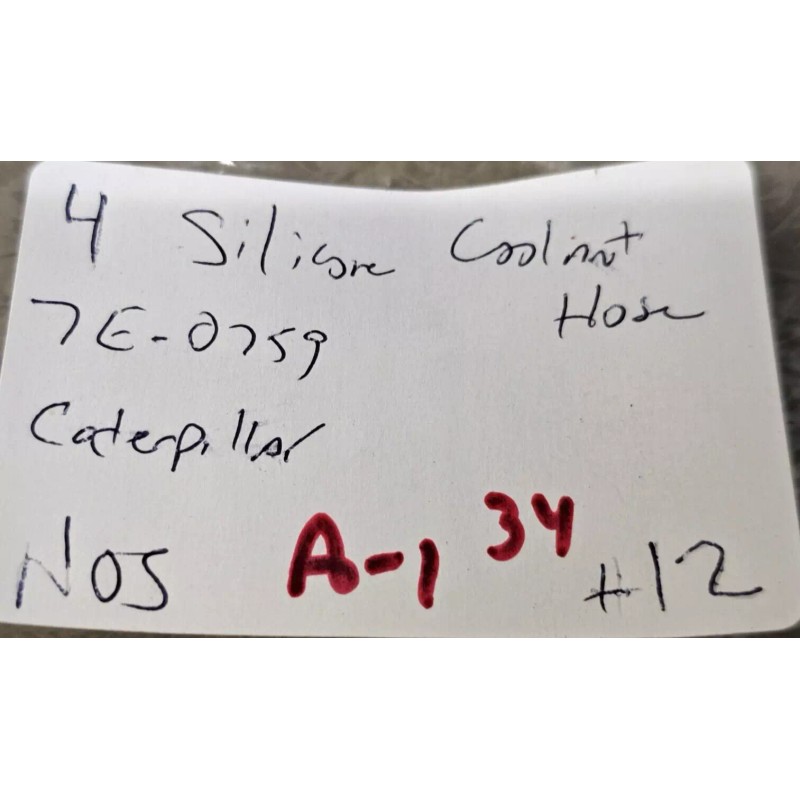 4 Silicone Coolant
Hose
7E-0759
Caterpillar
NOS A-1 34 +12